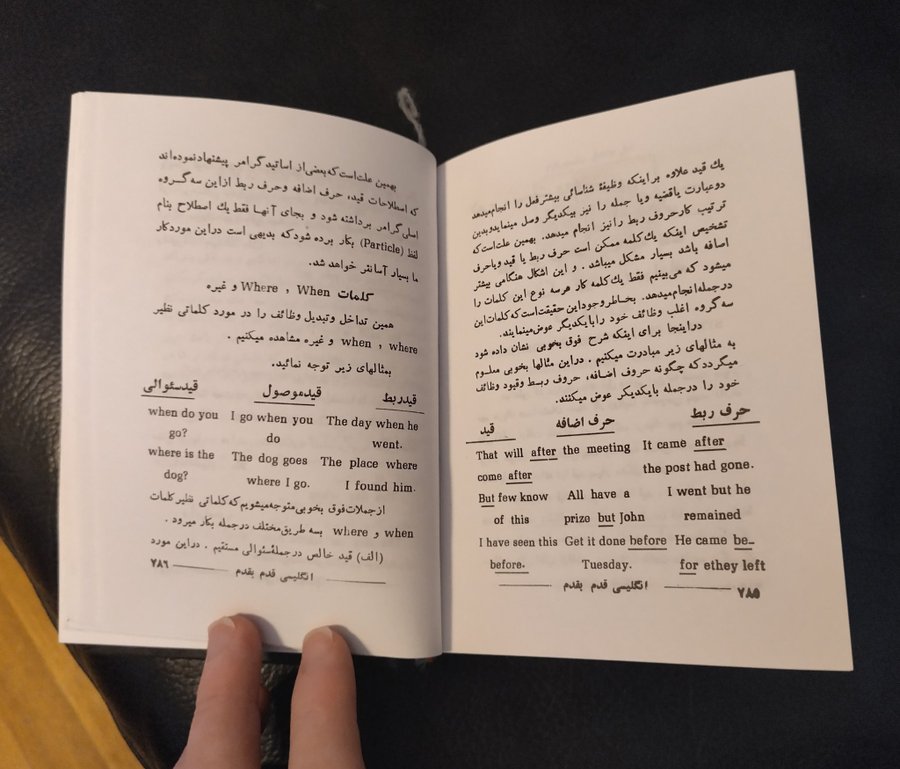 یك قید علاوه بر اینکه وظیفهٔ شناسائی بیشتر فعل را انجام میدهد
دوعبارت یاقضیه ویا جمله را نیز بیکدیگر وصل مینماید وبدین
ترتیب کار حروف ربط را نیز انجام میدهد. بهمین علت است که
تشخیص اینکه یك کلمه ممکن است حرف ربط یا قید ویا حرف
اضافه باشد بسیار مشکل میباشد . و این اشکال هنگامی بیشتر
میشود که می‌بینیم فقط یك کلمه کار هرسه نوع این کلمات را
درجمله انجام میدهد. بخاطر وجود این حقیقت است که کلمات این
سه گروه اغلب وظائف خود را بایکدیگر عوض مینمایند.
دراینجا برای اینکه شرح فوق بخوبی نشان داده شود
به مثالهای زیر مبادرت میکنیم . دراین مثالها بخوبی معلوم
میگردد که چگونه حروف اضافه، حروف ربط وقیود وظائف
خود را درجمله بایکدیگر عوض میکنند.
حرف ربط حرف اضافه قید
That will after the meeting It came after
come after the post had gone.
But few know All have a I went but he
of this prize but John remained
I have seen this Get it done before He came be-
before. Tuesday. for ethey left
۷۸۵ انگلیسی قدم بقدم
بهمین علت است که بعضی از اساتید گرامر پیشنهاد نموده‌اند
که اسطلاحات قید، حرف اضافه وحرف ربط از این سه گروه
اسلی گرامر برداشته شود و بجای آنها فقط یك اصطلاح بنام
لفظ (Particle) بکار برده شود که بدیهی است دراین مورد کار
ما بسیار آسانتر خواهد شد.
کلمات Where , When و غیره
همین تداخل وتبدیل وظائف را در مورد کلماتی نظیر
when , where و غیره مشاهده میکنیم .
بمثالهای زیر توجه نمائید.
قید ربط قید موصول قید سئوالی
when do you I go when you The day when he
go? do went.
where is the The dog goes The place where
dog? where I go. I found him.
از جملات فوق بخوبی متوجه میشویم که کلماتی نظیر کلمات
when و where بسه طریق مختلف درجمله بکار میرود .
(الف) قید خالص درجملهٔ سئوالی مستقیم . دراین مورد
انگلیسی قدم بقدم ۷۸۶